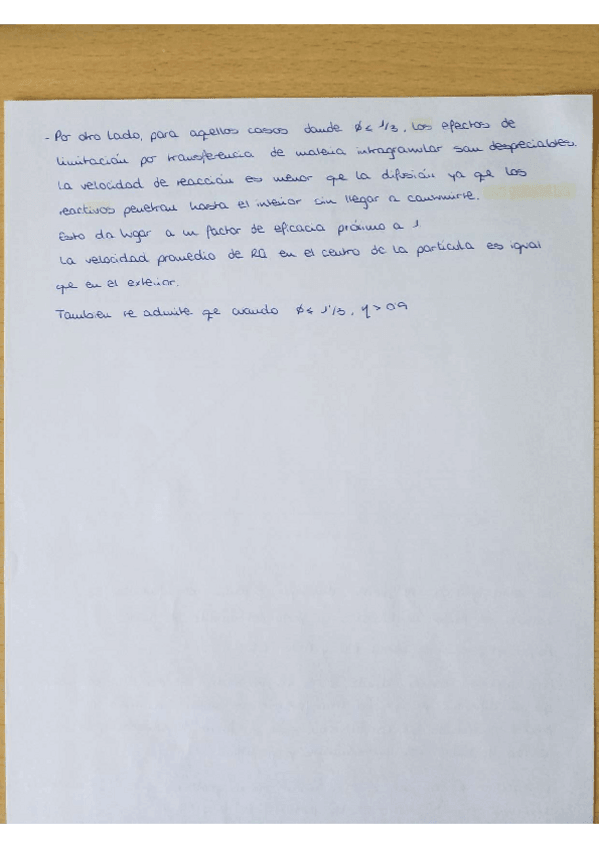 - Por otro lado, para aquellos casos donde ø ≤ 1/3, los efectos de
limitación por transferencia de materia intragranular son despeciables.
La velocidad de reacción es menor que la difusión ya que los
reactivos penetran hasta el interior sin llegar a consumirse.
Esto da lugar a un factor de eficacia próximo a 1.
La velocidad promedio de RQ en el centro de la partícula es igual
que en el exterior.
También se admite que cuando ø ≤ 1/3, η > 0.9